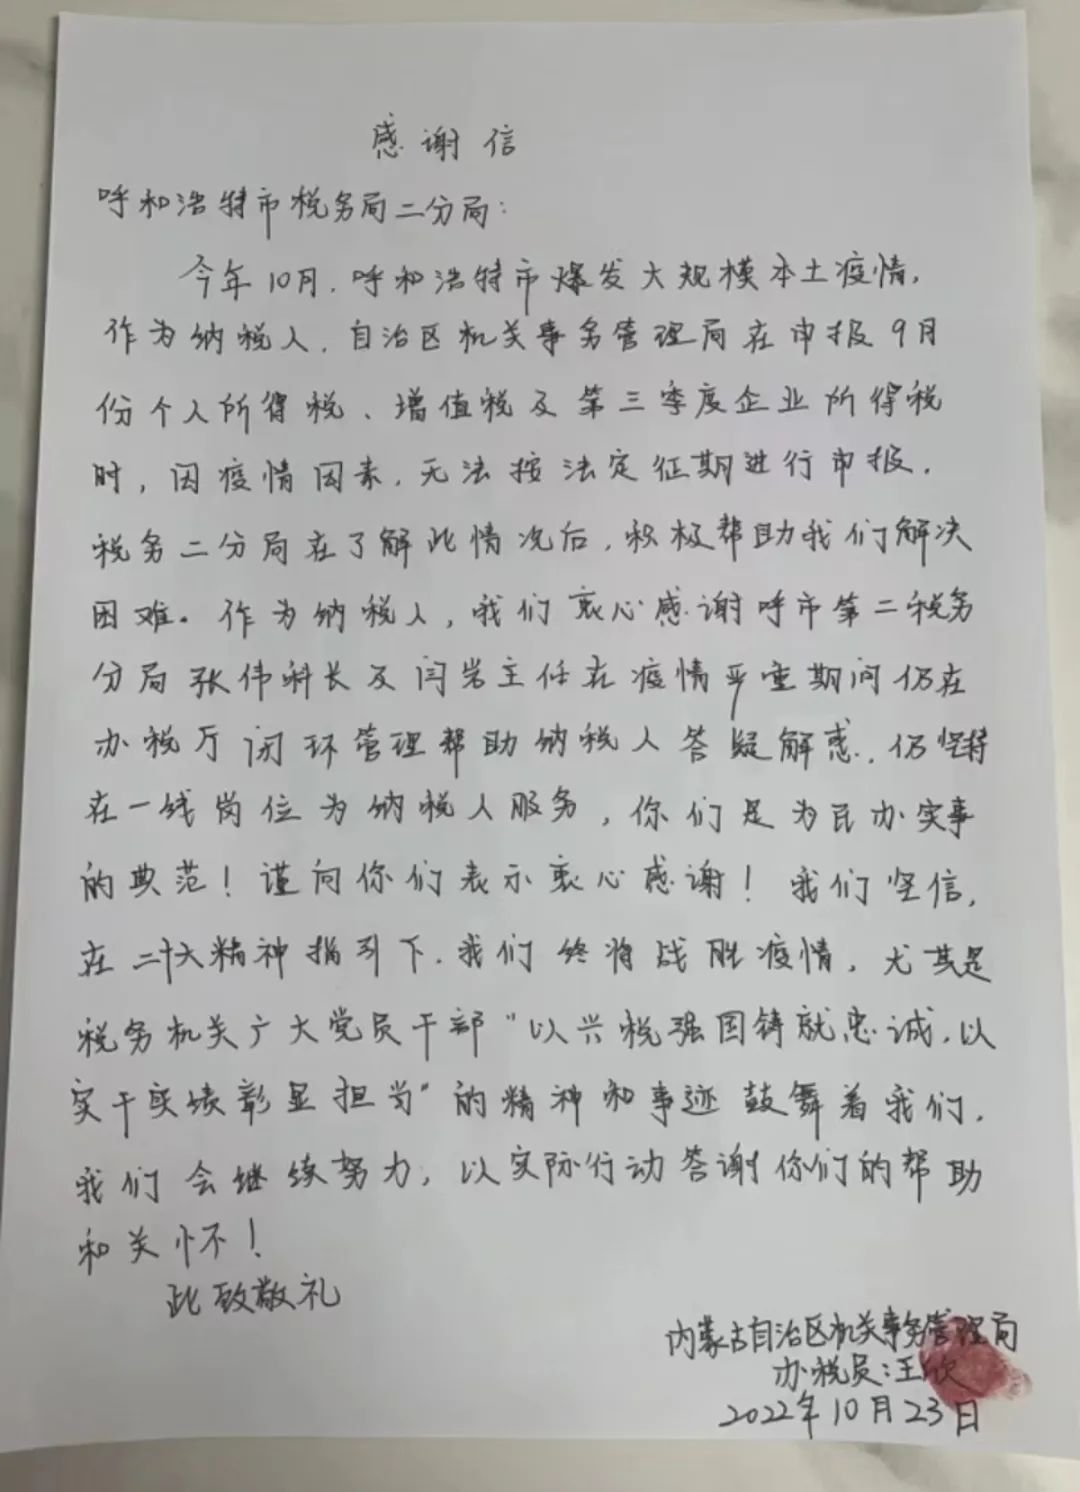 感谢信
呼和浩特市税务局二分局：
今年10月，呼和浩特市爆发大规模本土疫情，
作为纳税人，自治区机关事务管理局在申报9月
份个人所得税、增值税及第三季度企业所得税
时，因疫情因素，无法按法定征期进行申报。
税务二分局在了解此情况后，积极帮助我们解决
困难。作为纳税人，我们衷心感谢呼市第二税务
分局张伟科长及闫岩主任在疫情严重期间仍在
办税厅闭环管理帮助纳税人答疑解惑，仍坚持
在一线岗位为纳税人服务，你们是为民办实事
的典范！谨向你们表示衷心感谢！我们坚信，
在二十大精神指引下，我们终将战胜疫情，尤其是
税务机关广大党员干部“以兴税强国铸就忠诚，以
实干实绩彰显担当”的精神和事迹鼓舞着我们，
我们会继续努力，以实际行动答谢你们的帮助
和关怀！
此致敬礼
内蒙古自治区机关事务管理局
办税员：王欣
2022年10月23日